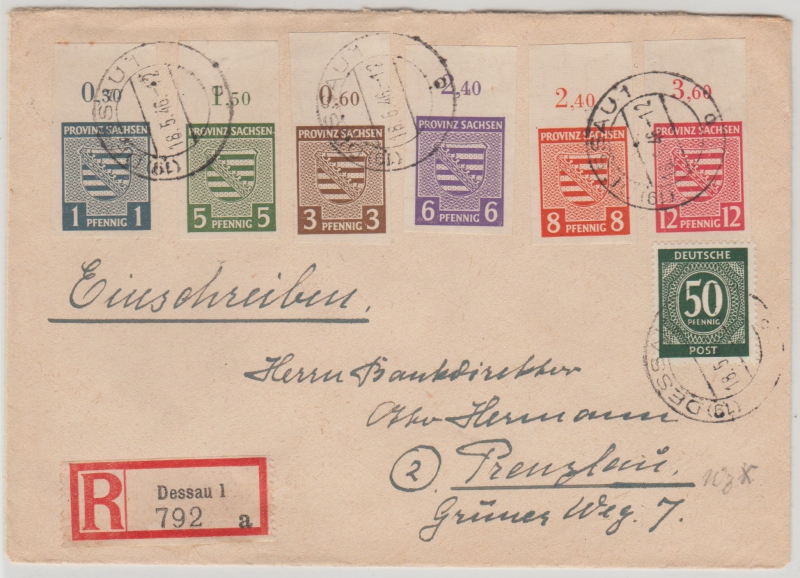 0,30 1,50 0,60 2,40 2,40 3,60
PROVINZ SACHSEN
1 PFENNIG 1
PROVINZ SACHSEN
5 PFENNIG 5
PROVINZ SACHSEN
3 PFENNIG 3
PROVINZ SACHSEN
6 PFENNIG 6
PROVINZ SACHSEN
8 PFENNIG 8
PROVINZ SACHSEN
12 PFENNIG 12
DESSAU 1
18.5.46-12
(19)
DEUTSCHE
50
PFENNIG
POST
(19) DESSAU
18.5
Einschreiben.
Herrn Bankdirektor
Otto Hermann
2 Prenzlau.
Grüner Weg. 7.
R Dessau 1
792 a